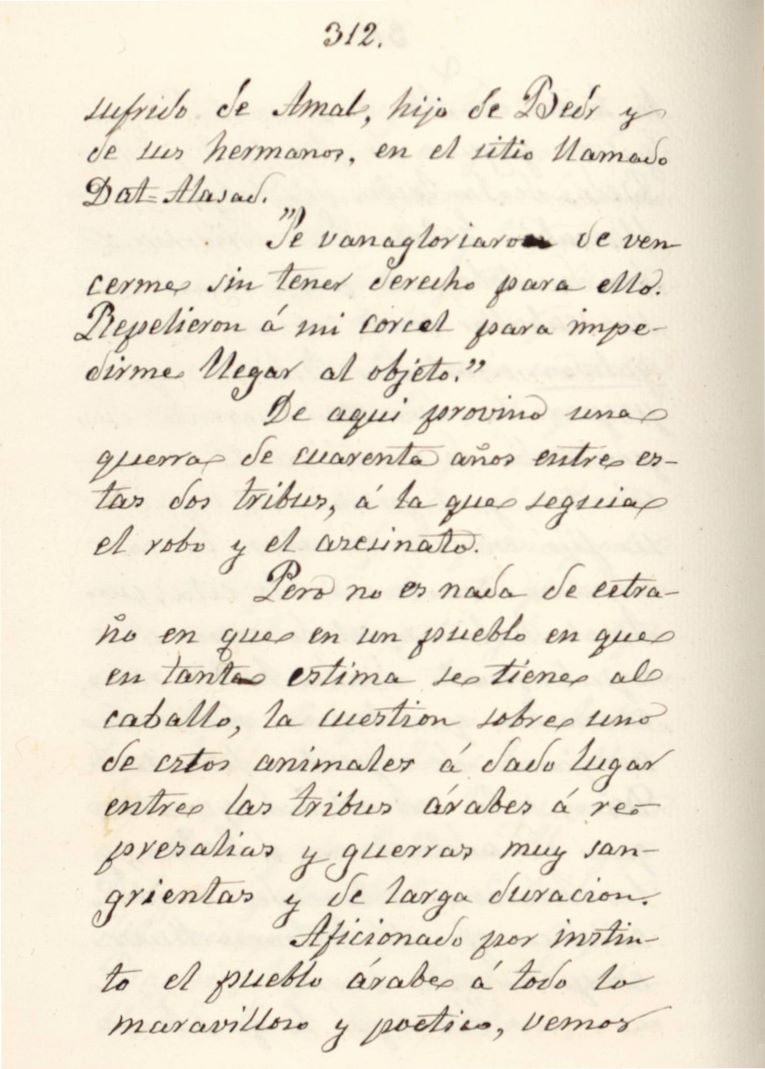 312.
sufrido de Amal, hijo de Bedr y
de sus hermanos, en el sitio llamado
Dat=Alasad.
"Se vanagloriaron de ven-
cerme sin tener derecho para ello.
Repelieron á mi corcel para impe-
dirme llegar al objeto."
De aqui provino una
guerra de cuarenta años entre es-
tas dos tribus, á la que seguia
el robo y el asesinato.
Pero no es nada de estra-
ño en que en un pueblo en que
en tanta estima se tiene al
caballo, la cuestion sobre uno
de estos animales á dado lugar
entre las tribus árabes á re-
presalias y guerras muy san-
grientas y de larga duracion.
Aficionado por instin-
to el pueblo árabe á todo lo
maravilloso y poetico, vemos